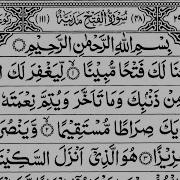 (٤٨) سُوْرَةُ الْفَتْحِ مَدَنِيَّةٌ (١١١)
بِسْمِ اللّٰهِ الرَّحْمٰنِ الرَّحِيْمِ
نَا لَكَ فَتْحًا مُّبِيْنًا ۝١ لِّيَغْفِرَ لَكَ ا
مِنْ ذَنْۢبِكَ وَمَا تَاَخَّرَ وَيُتِمَّ نِعْمَتَهٗ
يَكَ صِرَاطًا مُّسْتَقِيْمًا ۝٢ وَّيَنْصُرَ
زِيْزًا ۝٣ هُوَ الَّذِيْۤ اَنْزَلَ السَّكِيْنَ